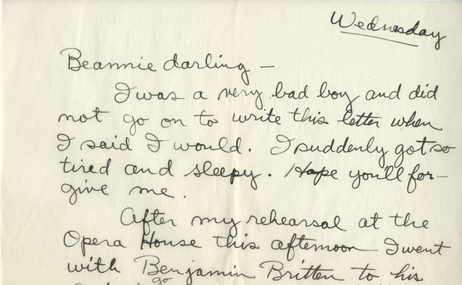 Wednesday
Beannie darling —
I was a very bad boy and did
not go on to write this letter when
I said I would. I suddenly got so
tired and sleepy. Hope you'll for-
give me.
After my rehearsal at the
Opera House this afternoon I went
with Benjamin Britten to his
go